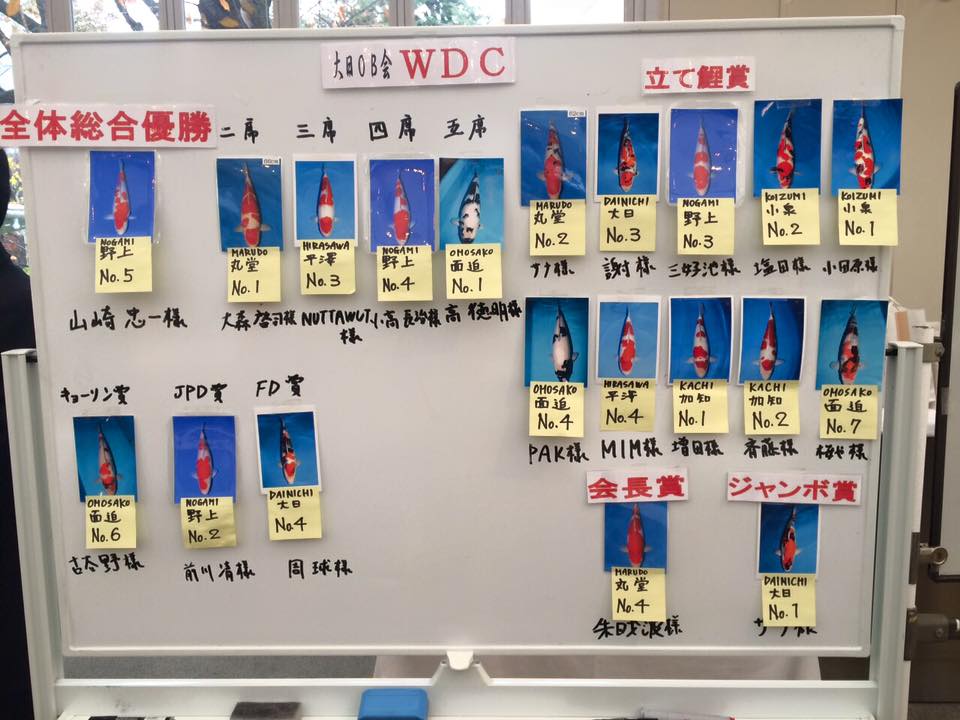 大日OB会 WDC
立て鯉賞
全体総合優勝
二席
三席
四席
五席
NOGAMI
野上
No.5
山崎 忠一様
MARUDO
丸堂
No.1
大森 啓司様
HIRASAWA
平澤
No.3
NUTTAWUT
様
NOGAMI
野上
No.4
小高 長治様
OMOSAKO
面迫
No.1
高 徳明様
MARUDO
丸堂
No.2
ササ様
DAINICHI
大日
No.3
謝村様
NOGAMI
野上
No.3
三好池様
KOIZUMI
小泉
No.2
塩田様
KOIZUMI
小泉
No.1
小田原様
OMOSAKO
面迫
No.4
PAK様
HIRASAWA
平澤
No.4
MIM様
KACHI
加知
No.1
増田様
KACHI
加知
No.2
斉藤様
OMOSAKO
面迫
No.7
様
キョーリン賞
JPD賞
FD賞
OMOSAKO
面迫
No.6
古谷野様
NOGAMI
野上
No.2
前川 清様
DAINICHI
大日
No.4
周 球様
会長賞
ジャンボ賞
MARUDO
丸堂
No.4
様
DAINICHI
大日
No.1
様